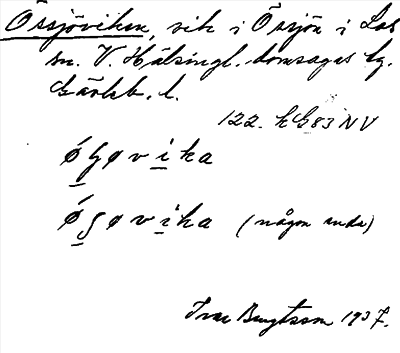 Össjöviken, vik i Össjön i Los
sn. V. Hälsingl. domsagas tg.
Gävleb. l.
122. h G83 NV
ǿʃøvika
ǿʃøvika (någon enda)
Ivar Bengtsson 1937.